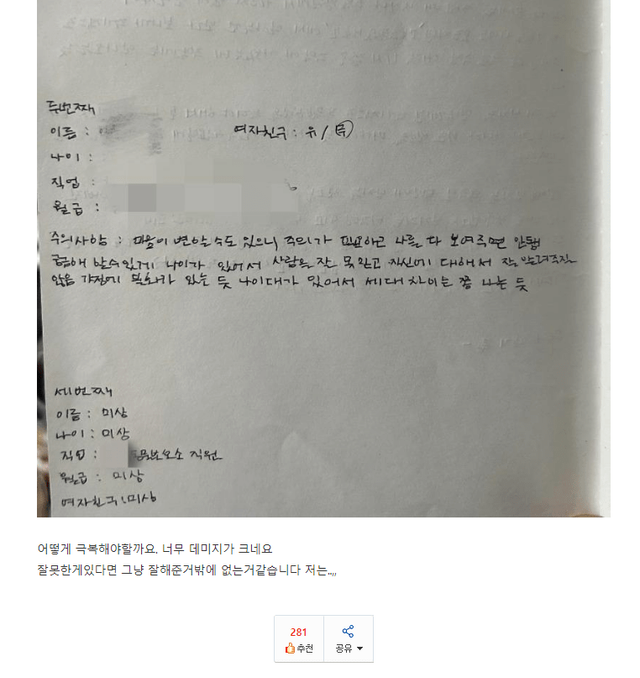 두번째
이름 :
여자친구 : 유 / 무
나이 :
직업 :
월급 :
주의사항 : 마음이 변할수도 있으니 주의가 필요하고 나를 다 보여주면 안됨
알수있게 나이가 있어서 사람을 잘 못믿고 자신에 대해서 잘 알려주질
않음 가정에 불화가 있는 듯 나이대가 있어서 세대차이는 쫌 나는 듯
세번째
이름 : 미상
나이 : 미상
직업 : 직원
월급 : 미상
여자친구 : 미상
어떻게 극복해야할까요. 너무 데미지가 크네요
잘못한게있다면 그냥 잘해준거밖에 없는거같습니다 저는..,,
281
추천
공유